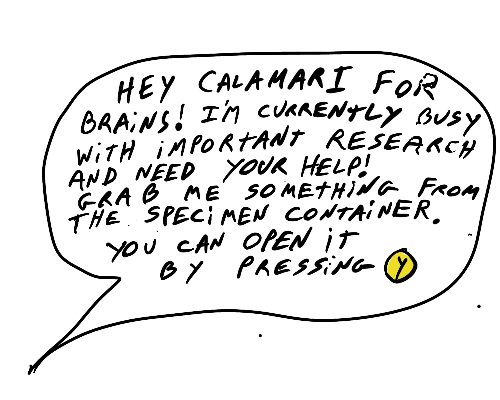 HEY CALAMARI FOR
BRAINS! I'M CURRENTLY BUSY
WITH IMPORTANT RESEARCH
AND NEED YOUR HELP!
GRAB ME SOMETHING FROM
THE SPECIMEN CONTAINER.
YOU CAN OPEN IT
BY PRESSING Y